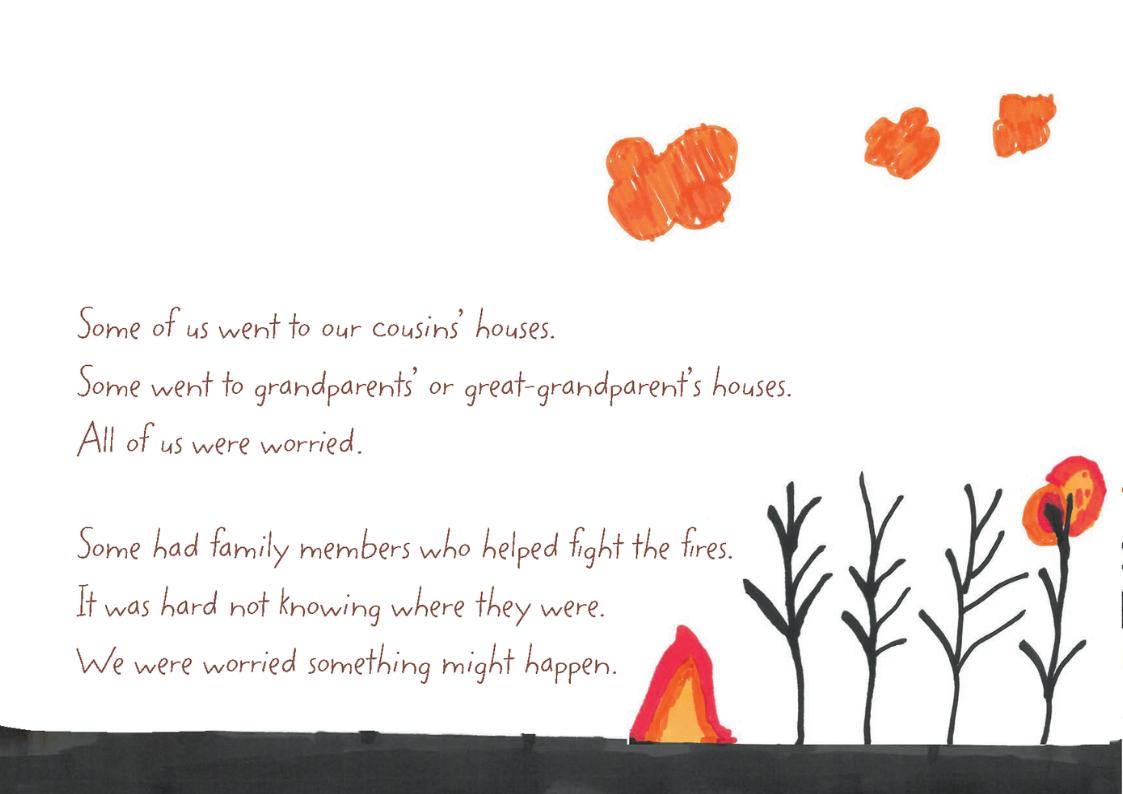 Some of us went to our cousins’ houses.
Some went to grandparents’ or great-grandparent’s houses.
All of us were worried.
Some had family members who helped fight the fires.
It was hard not knowing where they were.
We were worried something might happen.